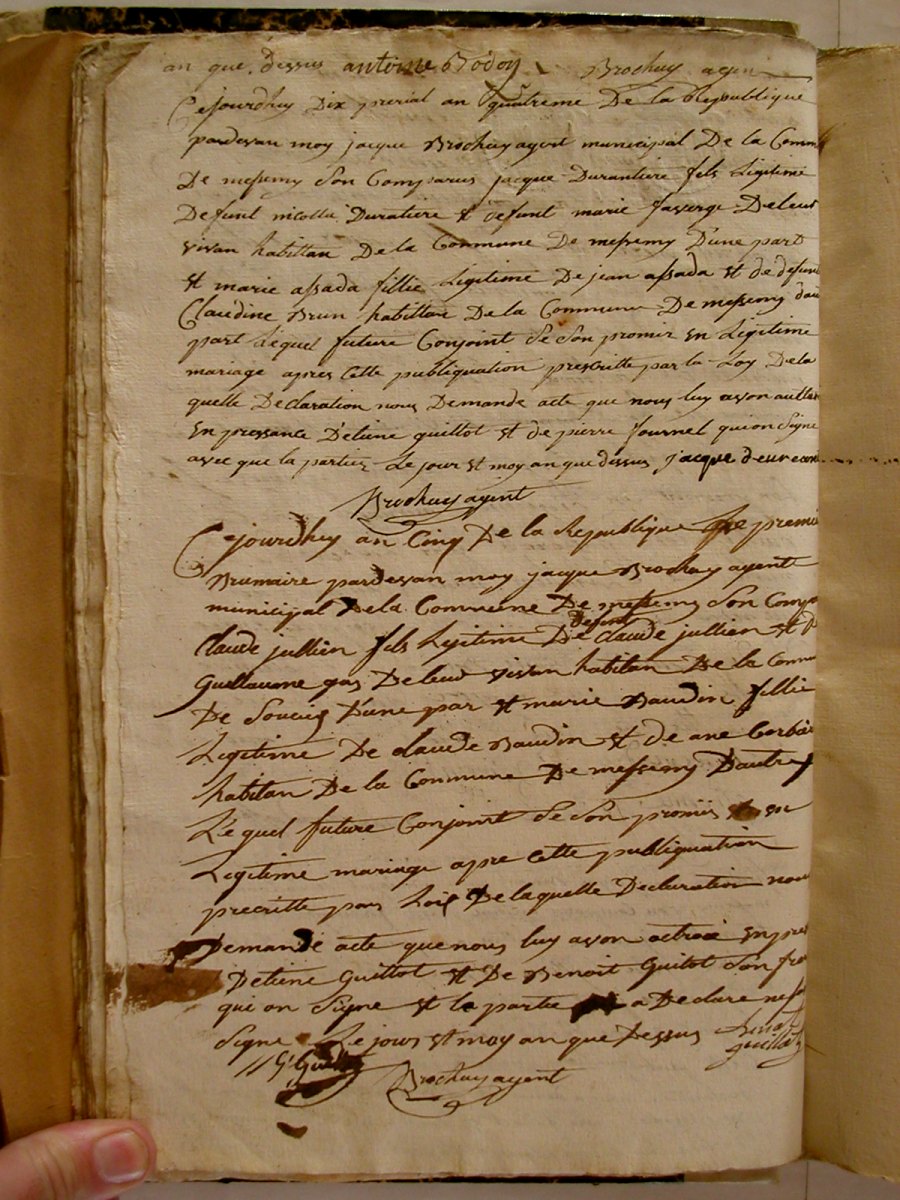 an que dessus antoine Bodoy Brochuy agent
Cejourdhuy Dix prerial an quatreme De la Republique
pardevan moy jacque Brochuy agent municipal De la Comm
De messemy Son Comparus jacque Durantiere fils Legitime
Defunt nicolla Duratiere et defunt marie faverge Deleur
vivan habittan De la Commune De messemy D'une part
et marie assada fillie Legitime De jean assada et de defun
Claudine Brun habittan De la Commune De messemy dau
part Lequel future Conjoint Se Son promir En Legitime
mariage apres Cette publiquation prescritte par la Loy Dela
quelle Declaration nous Demande acte que nous luy avon autter
En pressance D'etiene guillot et de pierre fournel qui on Signe
avec que la partier Le jour et moy an que dessus jacque
Brochuy agent
Cejourdhuy an Cinq De la Republique Le premie
Brumaire pardevan moy jacque Brochuy agent
municipal Dela Commune De messemy Son Compa
defunt
Claude jullien fils Legitime De Claude jullien et D
Guillaume gas Deleur vivan habitan De la Comm
De Soucieg D'une par et marie Baudin fillie
Legitime De claude Baudin et de ane Corba
habitan De la Commune De messemy D'autre
Le quel future Conjoint Se Son promis et en
Legitime mariage apre Cette publiquation
precritte par Loix De laquelle Declaration nou
Demande acte que nous luy avon actroié En pre
D'etiene Guittot et De Benoit Guitot Son fre
qui on Signe et la partie a Declare ne
Signe Le jour et moy an que Dessus
guillot
Brochuy agent